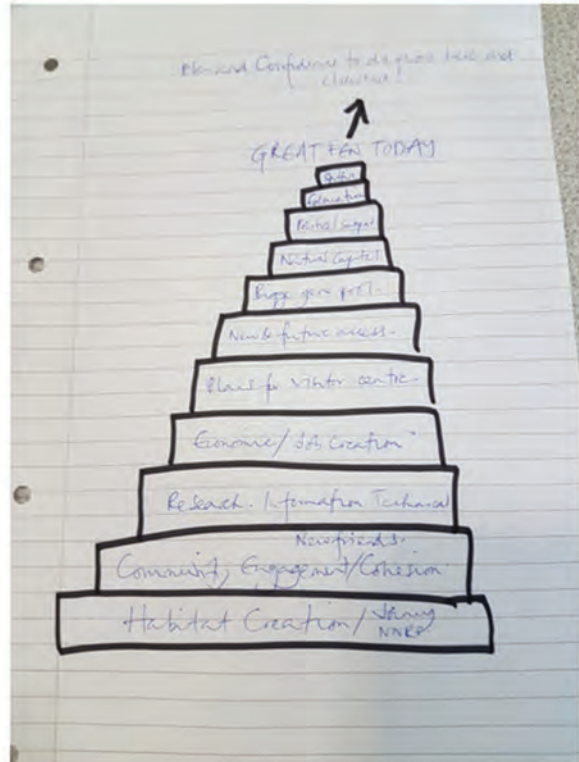 and Confidence to do more here and
elsewhere!
GREAT FEN TODAY
Education
Political support
Natural Capital
Bigger gene pool.
New & future access.
Plans for visitor centre.
Economic/Job Creation
Research. Information Technical
New friends.
Community Engagement/Cohesion
Habitat Creation/
NNRs